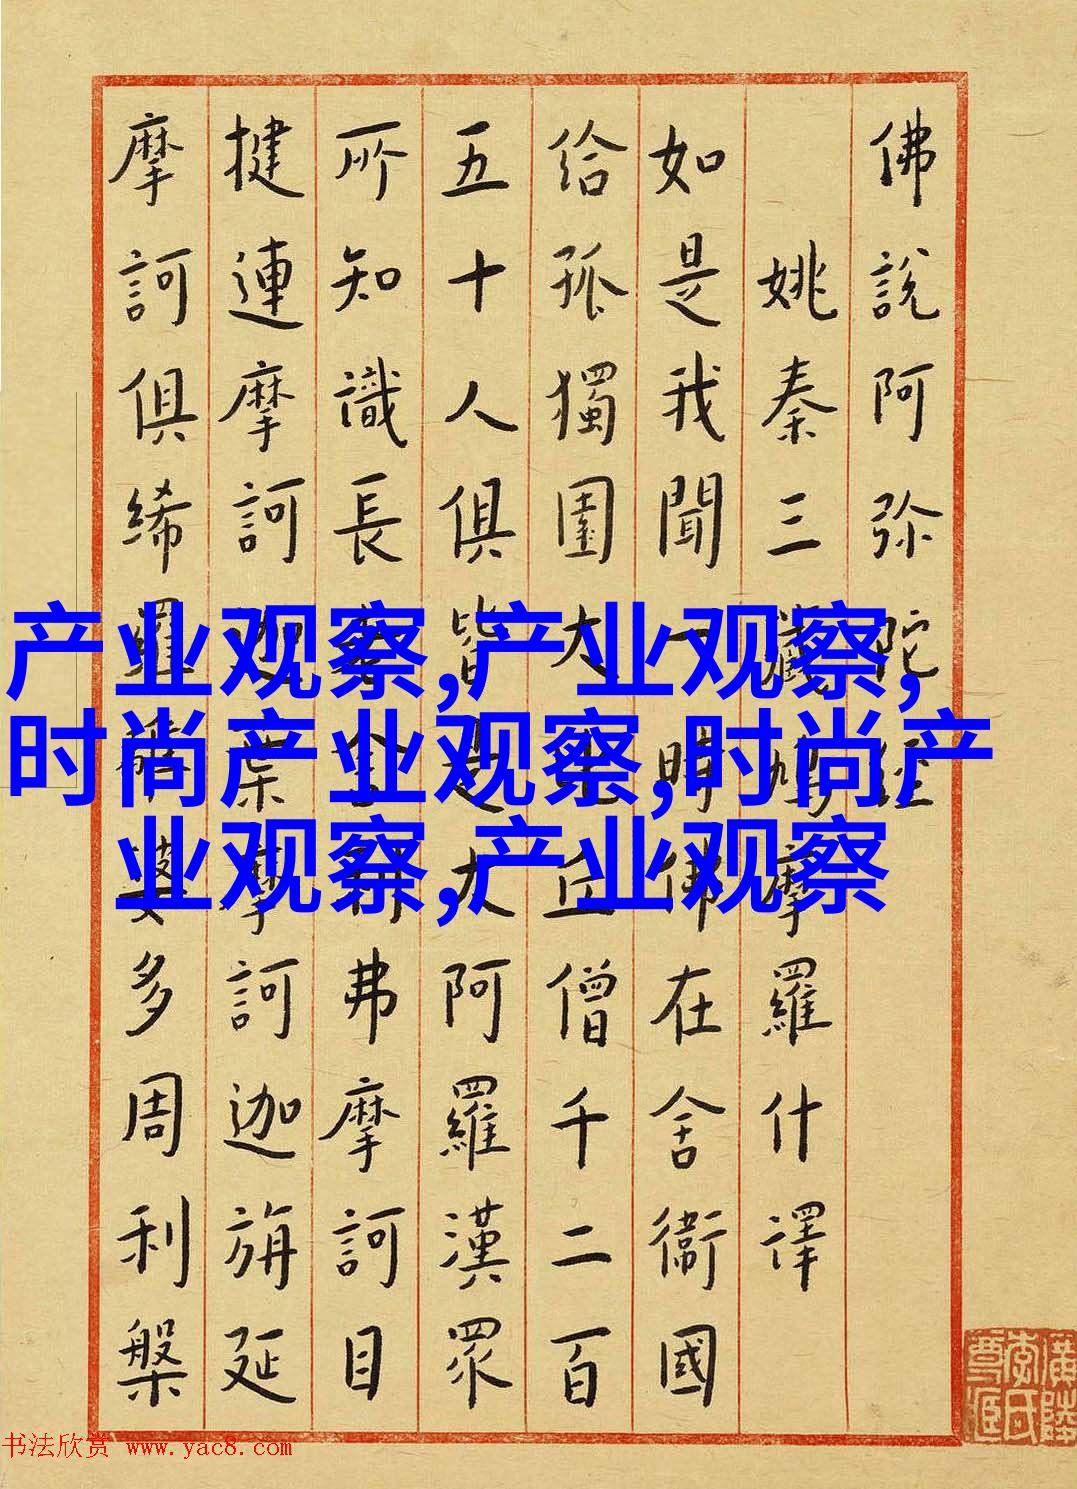 佛說阿弥陀経
姚秦三藏鳩摩羅什譯
如是我聞一時佛在舍衞國
給孤獨園大比丘僧千二百
五十人俱皆是大阿羅漢眾
所知識長老舍利弗摩訶目
揵連摩訶迦葉摩訶迦旃延
摩訶俱絺羅離婆多周利槃
产业观察,产业观察,
时尚产业观察,时尚产
业观察,产业观察
书法欣赏 www.yac8.com